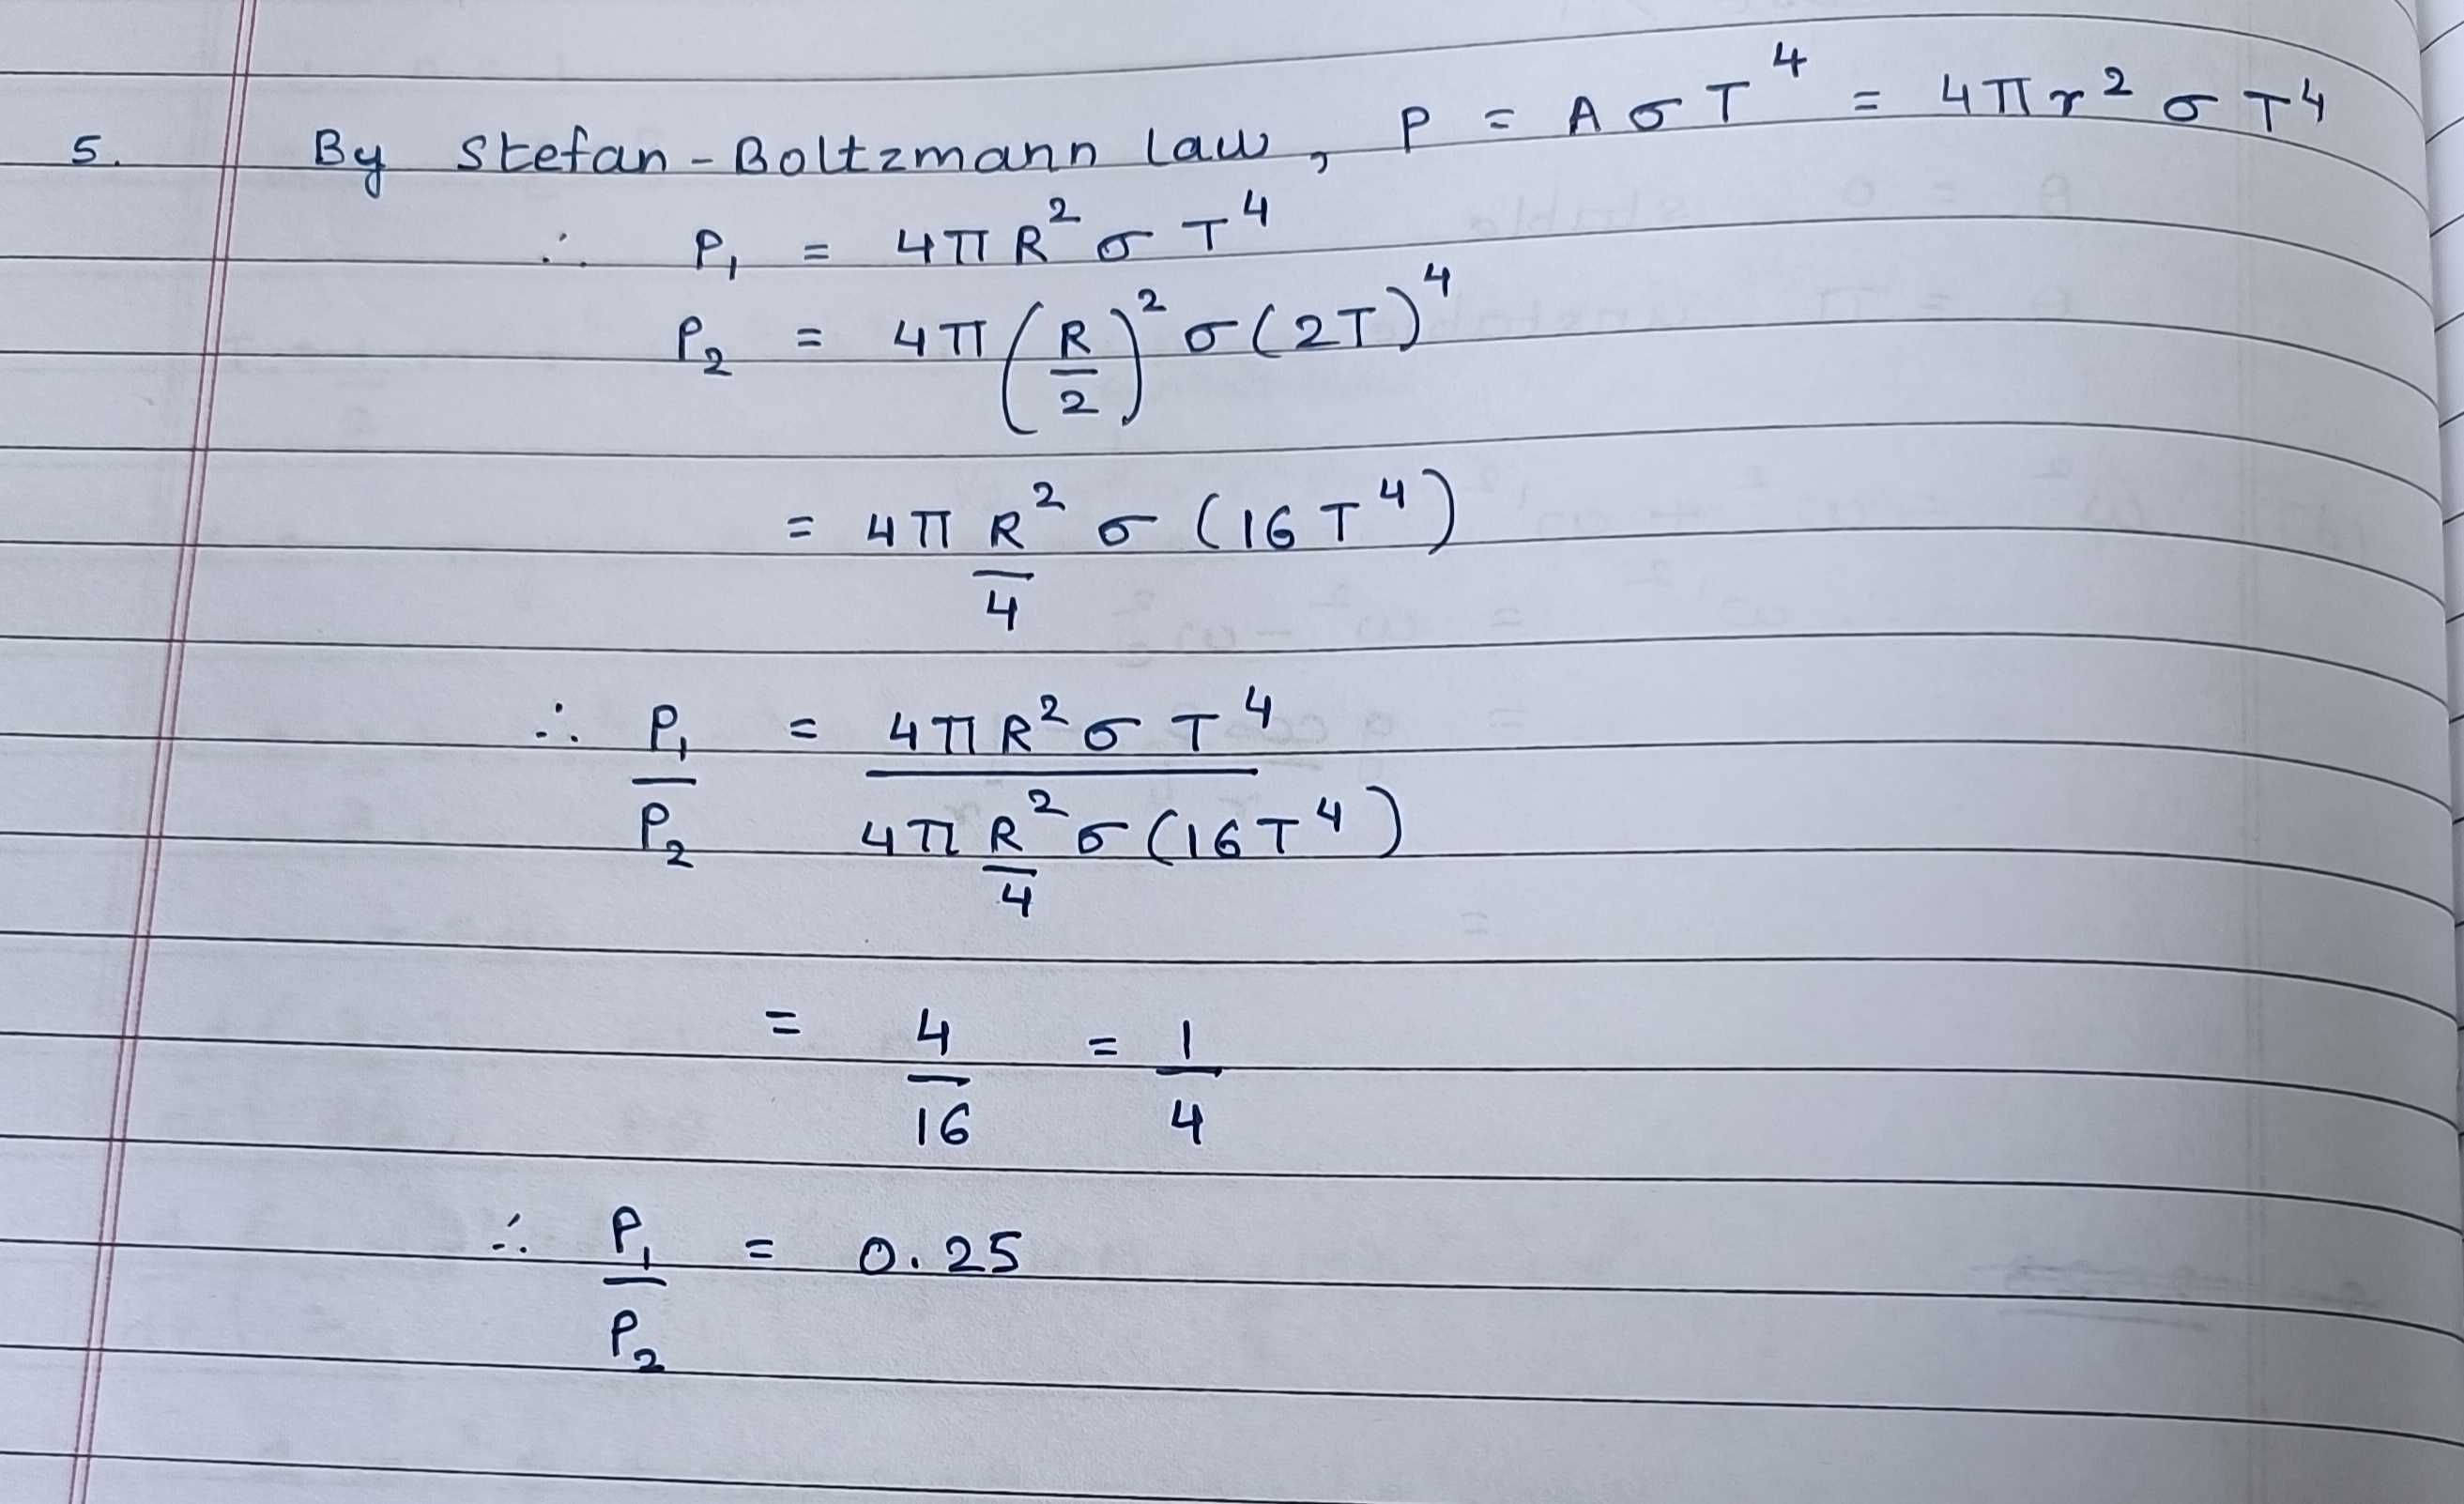 5. By Stefan-Boltzmann law, P = AσT⁴ = 4πr²σT⁴
∴ P₁ = 4πR²σT⁴
P₂ = 4π(R/2)²σ(2T)⁴
= 4π R²/4 σ(16T⁴)
∴ P₁/P₂ = 4πR²σT⁴ / 4π R²/4 σ(16T⁴)
= 4/16 = 1/4
∴ P₁/P₂ = 0.25